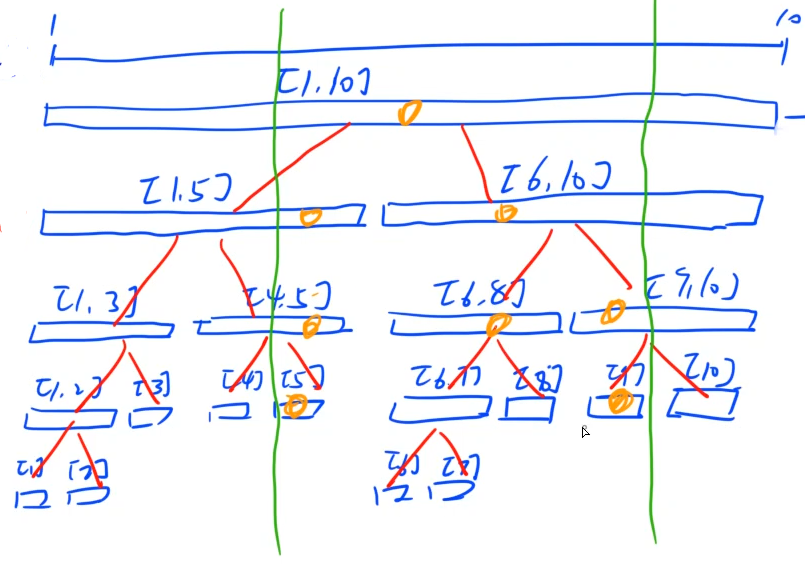 1 10
[1,10]
[1.5] [6,10]
[1,3] [4.5] [6,8] [9,10]
[1.2] [3] [4] [5] [6,7] [8] [9] [10]
[1] [2] [6] [7]